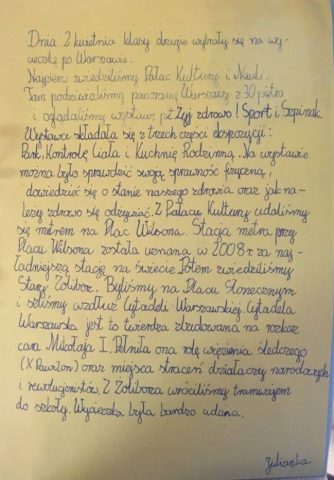 Dnia 2 kwietnia klasy drugie wybrały się na wy-
cieczkę po Warszawie.
Najpierw zwiedzaliśmy Pałac Kultury i Nauki.
Tam podziwialiśmy panoramę Warszawy z 30 piętra
i oglądaliśmy wystawę pt Żyj zdrowo! Sport i Szpinak.
Wystawa składała się z trzech części ekspozycji:
Park, Kontrolę Ciała i Kuchnię Rodzinną. Na wystawie
można było sprawdzić swoją sprawność fizyczną,
dowiedzieć się o stanie naszego zdrowia oraz jak na-
leży zdrowo się odżywiać. Z Pałacu Kultury udaliśmy
się metrem na Plac Wilsona. Stacja metra przy
Placu Wilsona została uznana w 2008 r za naj-
ładniejszą stację na świecie. Potem zwiedziliśmy
Stary Żoliborz. Byliśmy na Placu Słonecznym
i szliśmy wzdłuż Cytadeli Warszawskiej. Cytadela
Warszawska jest to twierdza zbudowana na rozkaz
cara Mikołaja I. Pełniła ona rolę więzienia śledczego
(X Pawilon) oraz miejsca straceń działaczy narodowych
i rewolucjonistów. Z Żoliborza wróciliśmy tramwajem
do szkoły. Wycieczka była bardzo udana.
Julianka